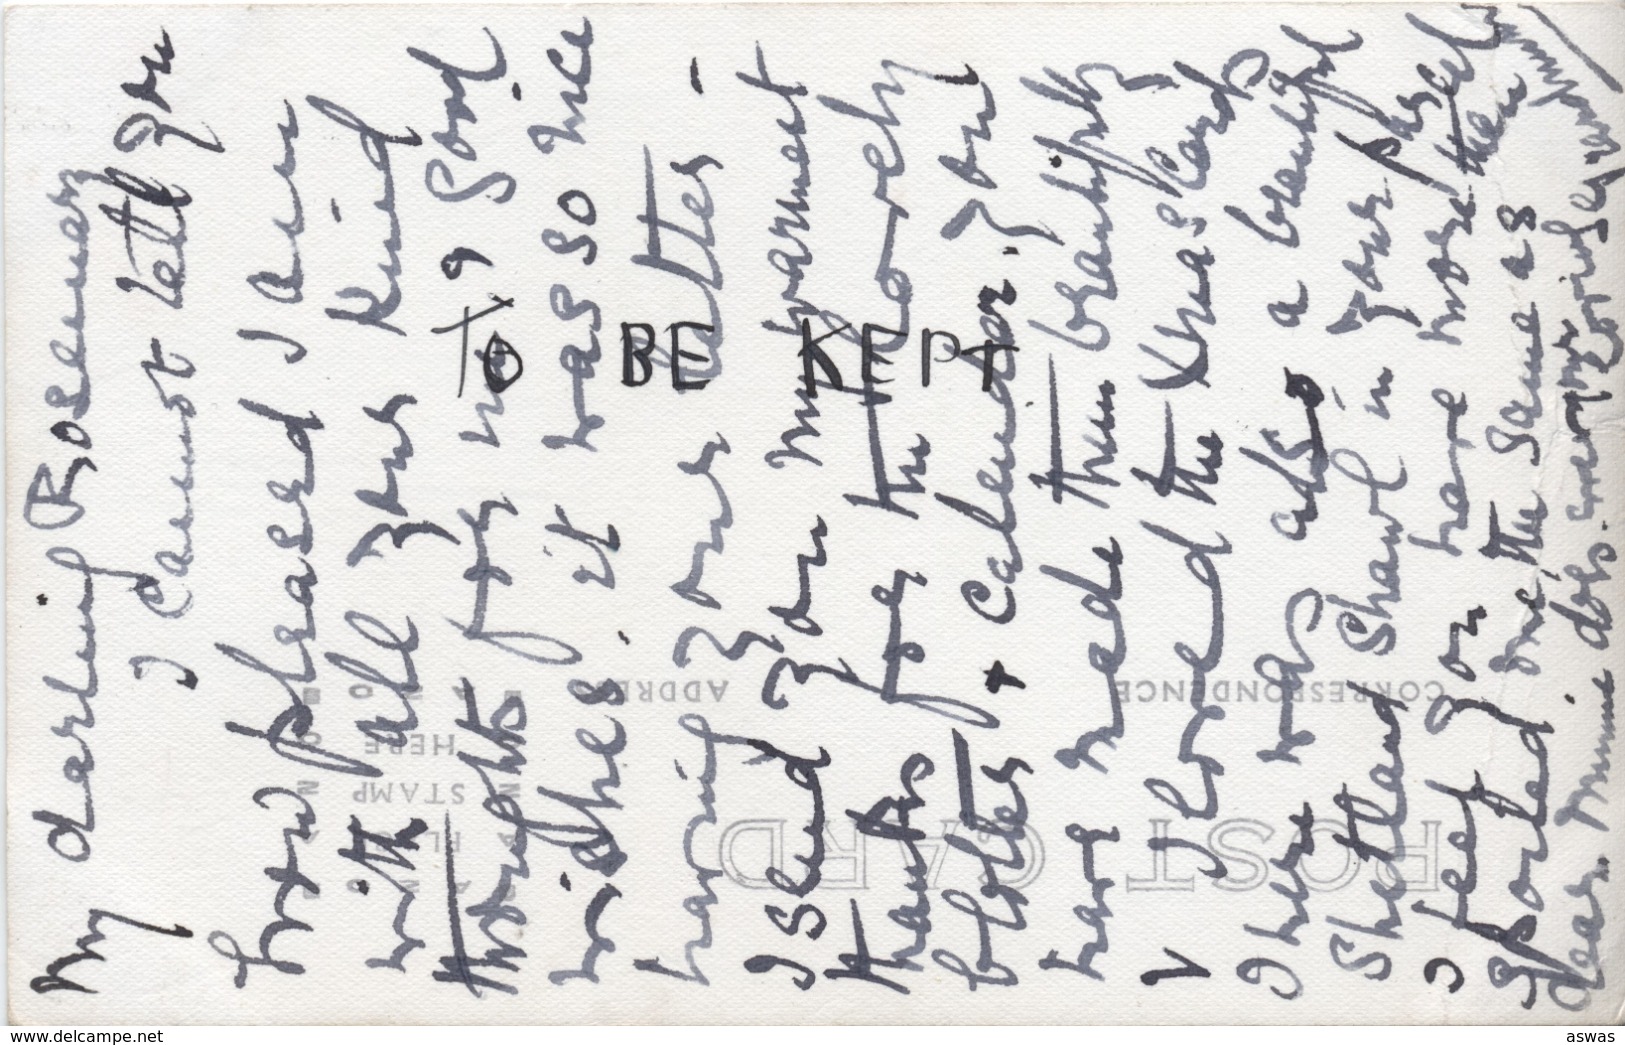 My darling Rosemary
I cannot tell you
how pleased I am
with all your kind
thoughts for my good
wishes. it was so nice
having your letter -
I send you my warmest
thanks for the lovely
blotter + calender. you
have made them beautifully
& I loved the Xmas card
There was also a beautiful
Shetland Shawl in your parcel
I feel you have more then
spoiled me, the same as
dear Mummie does.
loving
TO BE KEPT
POST CARD
CORRESPONDENCE
ADDRE
STAMP
HERE
aswas